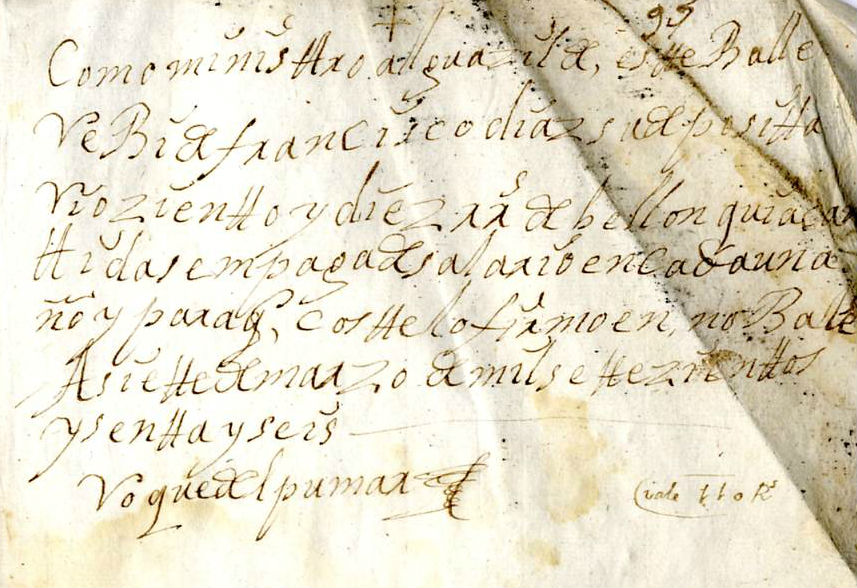 99
Como ministtro allguazil de, estte Balle
Re Bi de francisco diaz su depositta
rio zientto y diez rrs de bellon qui a can
ttidas em paga de salario en cada un a
ño y para q. costte lo firmo en, no Balle
A siette de marzo de mil settezienttos
y sentta y seis
Roque del pumar
(vale 110 Rs